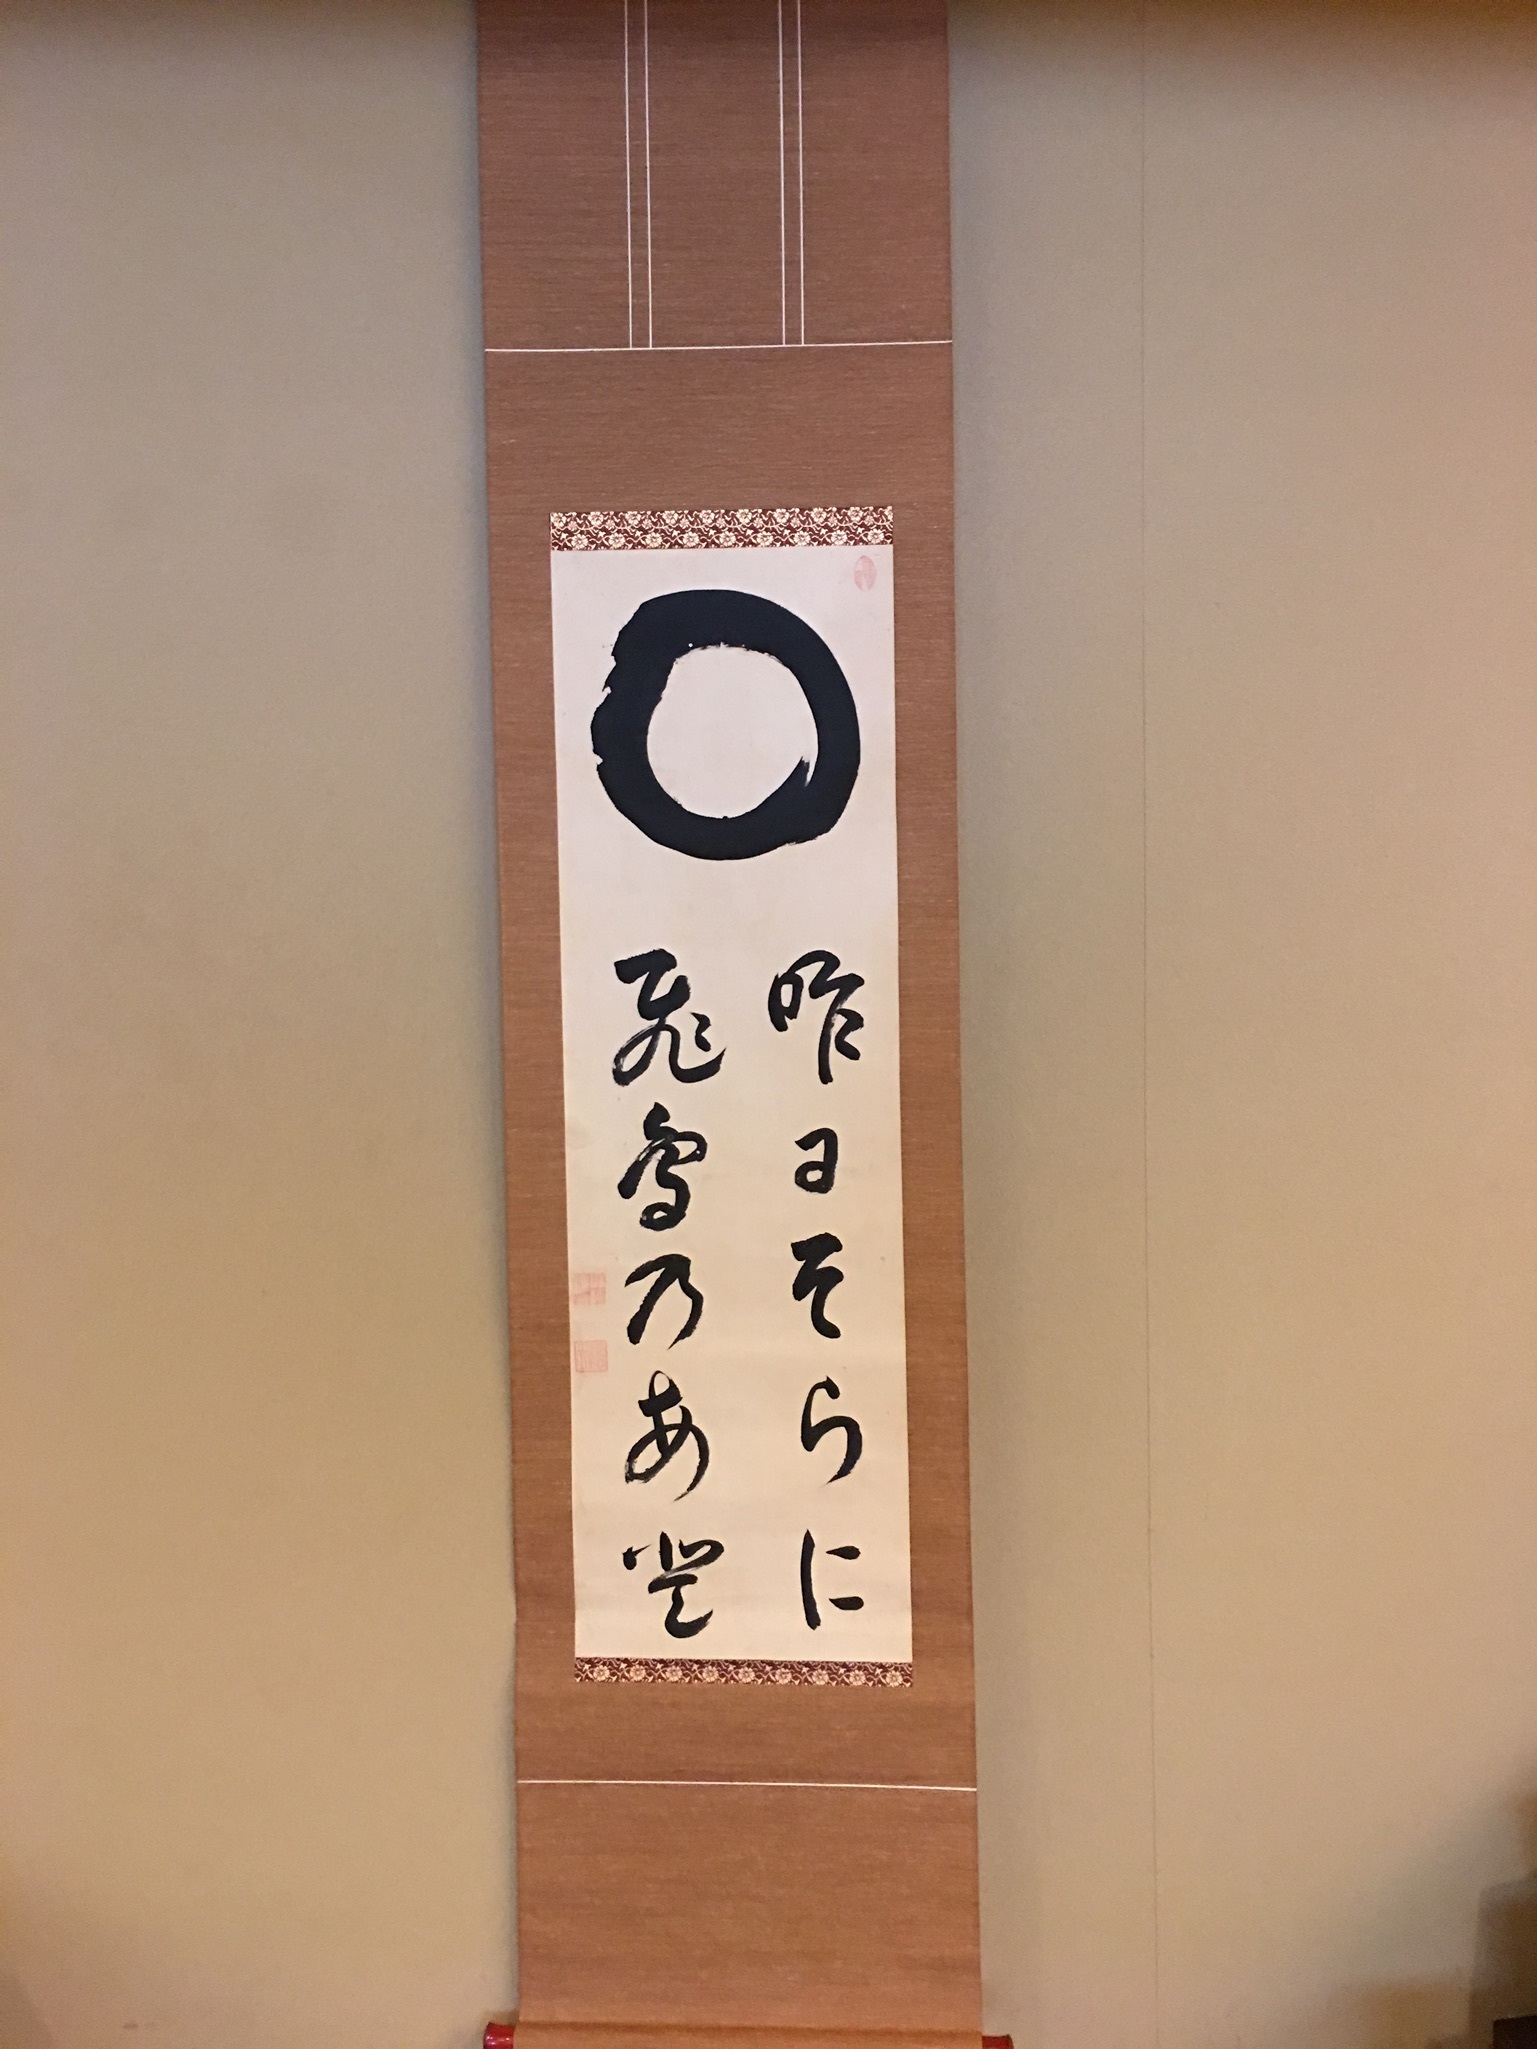 昨日そらに
飛鳥乃あ登